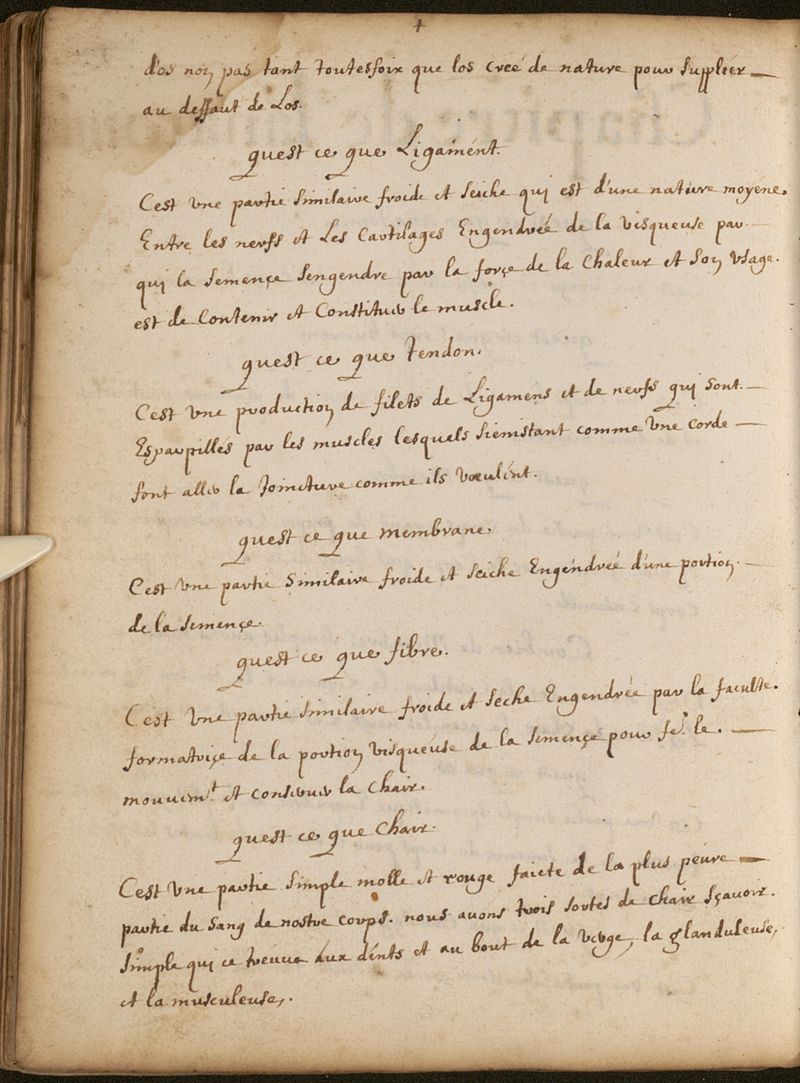 +
d'os non pas tant toutesfoix que los creé de nature pour suppléer
au deffaut de Los.
quest ce que Ligament.
Cest Vne partie similaire froide et seiche qui est d'une nature moyéne.
Entre les nerfs et Les Cartilages Engendrée de la Visqueuse par
qui la semençe sengendre par la forçe de la Chaleur et son Vsage.
est de Contenir et Constituer le muscle.
quest ce que Tendon.
Cest Vne production de filets de Ligamens et de nerfs qui sont
Esparpilles par les muscles lesquels comme Vne corde
font aller la Joincture comme ils vœulént.
quest ce que membrane.
Cest Vne partie similaire froide et seiche Engéndreé d'une portion
de la semençe.
quest ce que fibre.
Cest Vne partie similaire froide et seche Engendrée par la faculte.
formatriçe de la portion visqueuse de la semençe pour le.
mouuem.t et la Chair.
quest ce que Chair.
Cest Vne partie simple molle et rouge faicte de la plus peure
partie du sang de nostre corps. nous auons trois sortes de chair sçauoir.
simple qui ce treuue aux dénts et au bout de la verge, la glanduleuse,
et la musculeuse,.